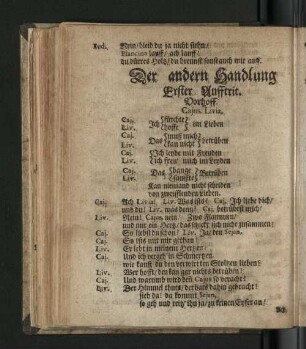 Rud. Nein/ bleib du ja nicht stehn/
Blancien lauff/ ach lauff/
du dürres Holtz/ du brennst sonst auch mit auff.
Der andern Handlung
Erster Aufftrit.
Vorhoff.
Cajus. Livia.
Caj. Ich fürchte
Liv. hoffe im Lieben
Caj. Das muß mich
Liv. kan nicht betrüben
Caj. Ich leyde mit Freuden
Liv. Ich freue mich im Leyden
Caj. Das bange
Liv. sanffte Betrüben
Kan niemand nicht scheiden
von zweiffelnden Lieben.
Caj. Ach Livia! Liv. Was ists? Caj. Ich liebe dich/
und du! Liv. was denn? Caj. du mich/
Liv. Nein! Cajus nein! Zwo Flammen/
und nur ein Hertz/ das schickt sich nicht zusammen:
Caj. So liebst du schon/ Liv. Ja/ den Sejan.
Caj. So ists mit mir gethan!
Liv. Er lebt in meinem Hertzen/
Caj. Und ich vergeh in Schmertzen.
wie kanst du den verwirrten Stoltzen lieben?
Liv. Wer hofft/ den kan gar nichts betrüben/
Caj. Und warumb wird den Cajus so veracht?
Liv. Der Himmel thuts/ der hats dahin gebracht/
sieh da! da kommt Sejan,
so geh und reitz ihn ja/ zu keinen Eyfer an/